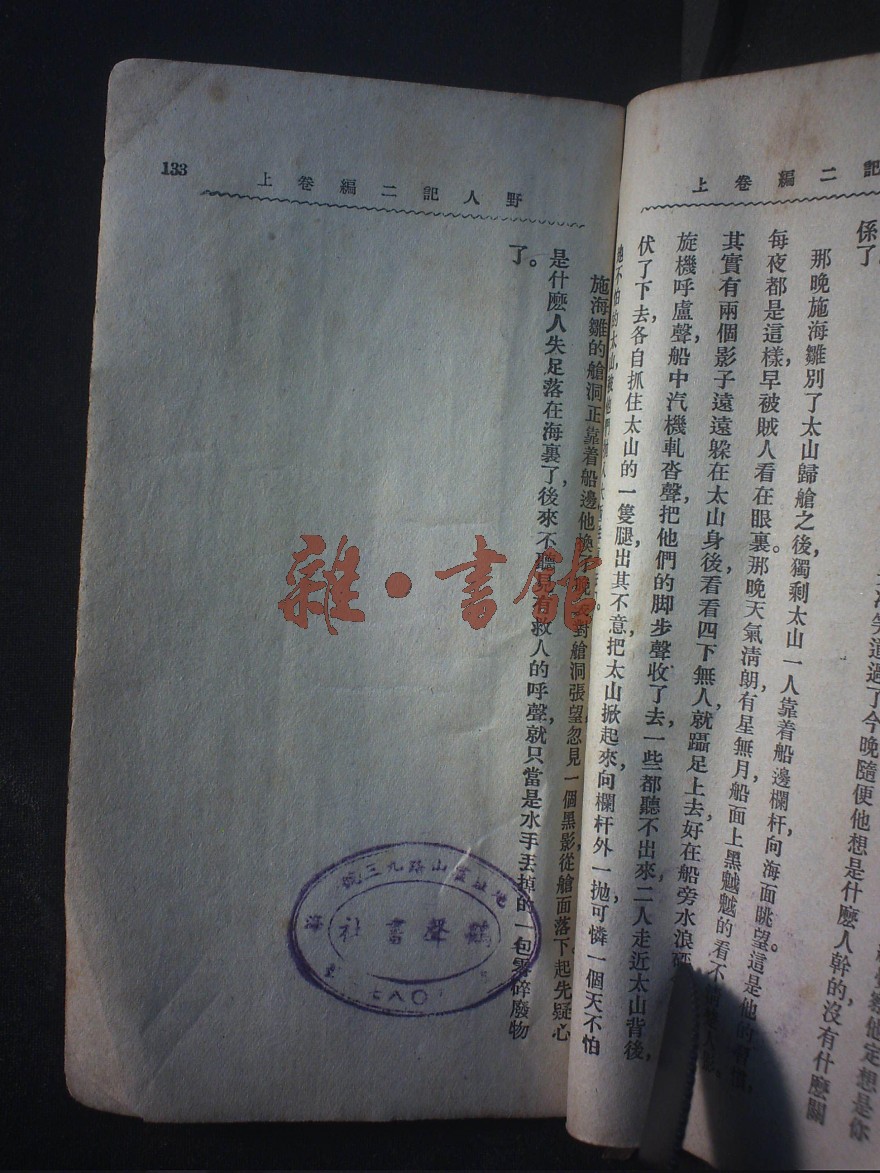 記二編卷上
係了。
那晚施海雛別了太山歸艙之後，獨剩太山一人靠着船邊欄杆，向海面眺望。這是他的
每夜都是這樣，早被賊人看在眼裏。那晚天氣清朗，有星無月，船面上黑魆魆的看不
其實有兩個影子遠遠躲在太山身後，看看四下無人，就躡足上去，好在船旁水浪
旋機呼盧聲，船中汽機軋沓聲，把他們的脚步聲收了去，一些都聽不出來，二人走近太山背後，
伏了下去，各自抓住太山的一隻腿，出其不意，把太山掀起來，向欄杆外一拋，可憐一個天不怕
地不怕的太山，
133
野人記二編卷上
施海雛的艙洞正靠着船邊，他換了
對艙洞張望，忽見一個黑影從艙面落下。起先疑心
是什麽人失足落在海裏了，後來不聽見有救人的呼聲，就只當是水手丟掉的一包零碎廢物
了。
雜·書館
山路九三
聲書社
海